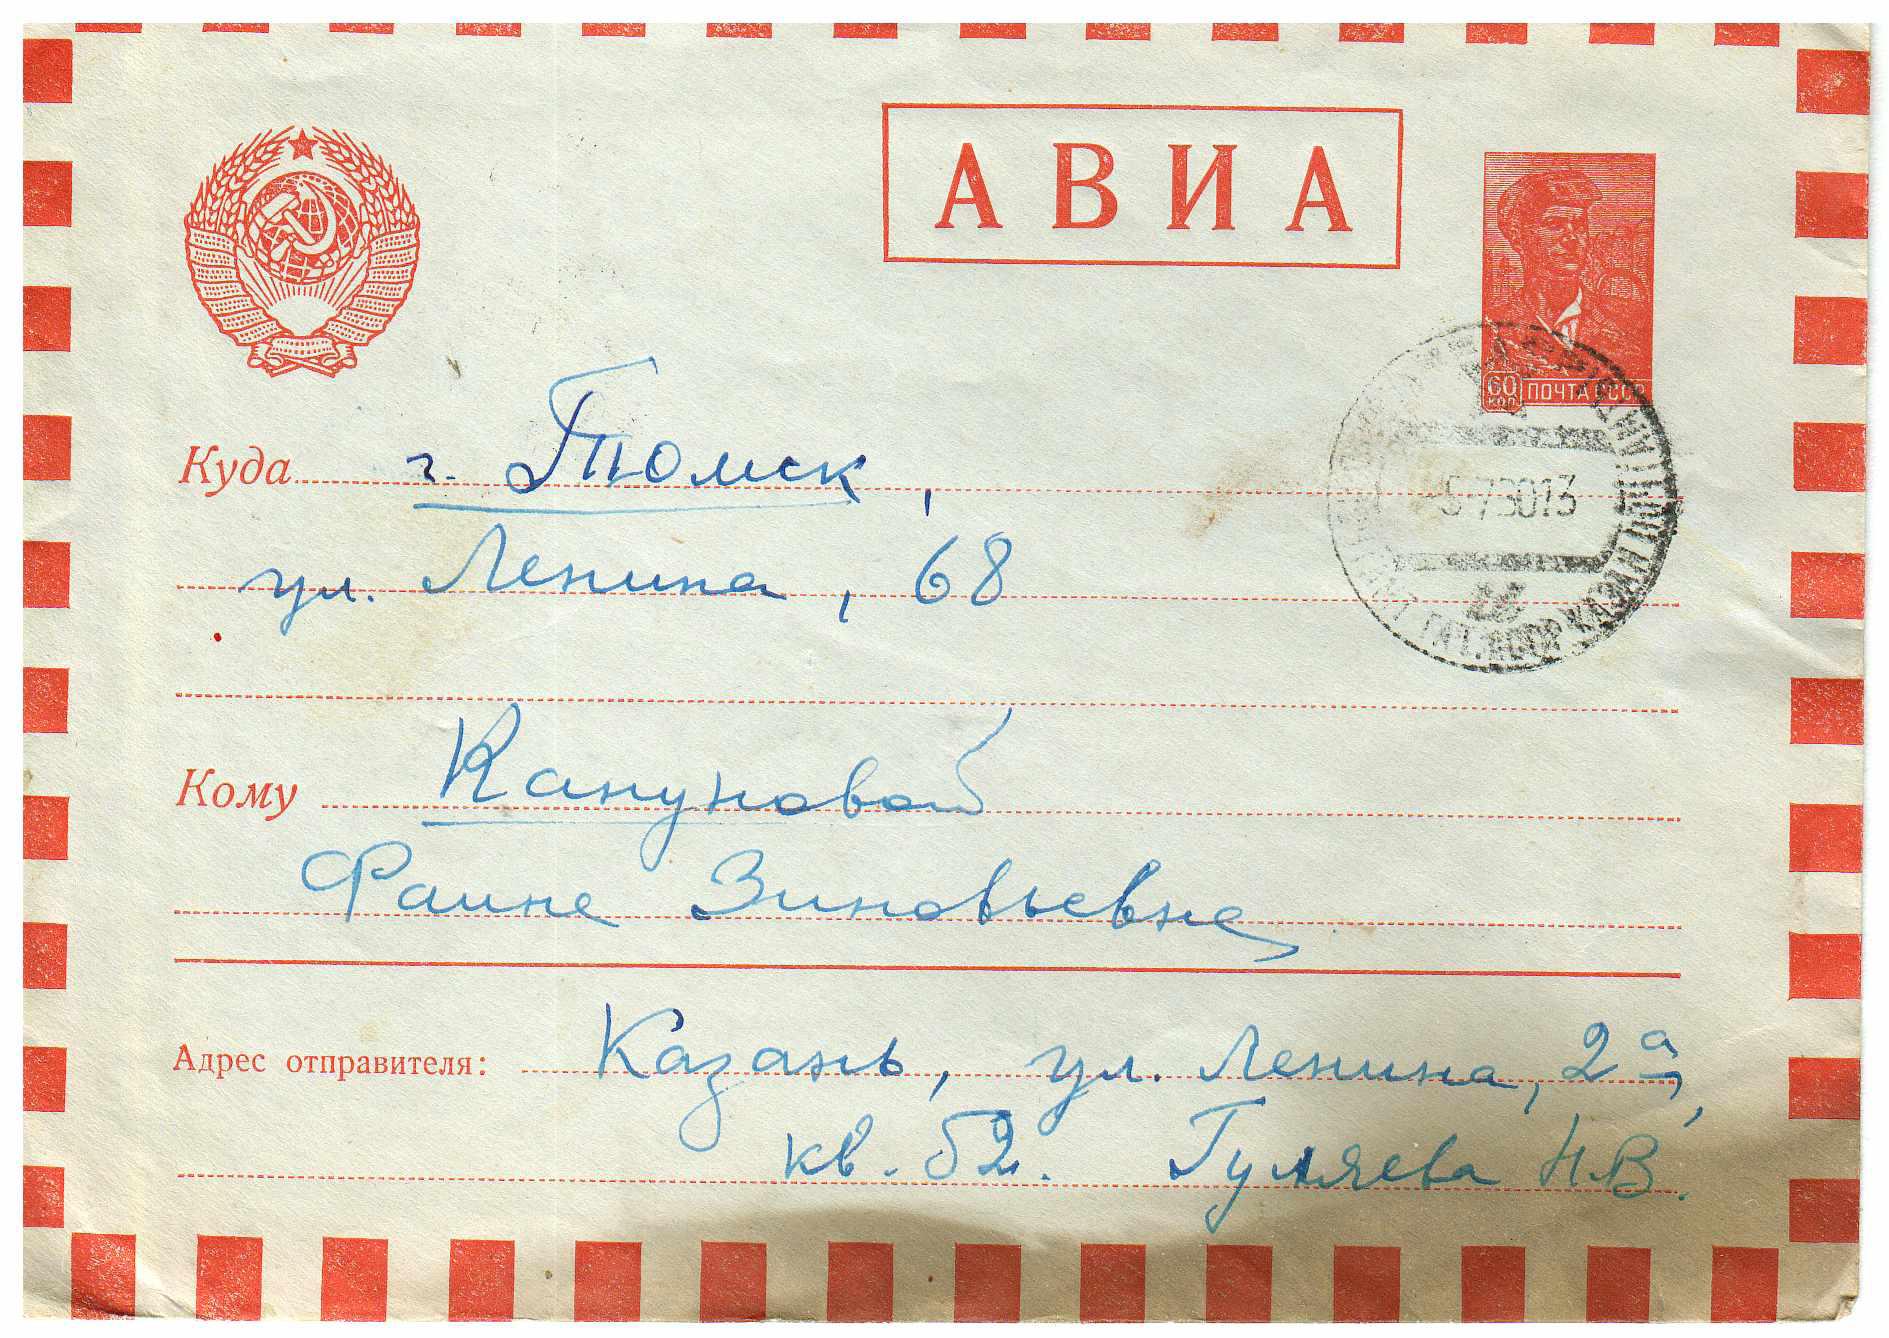 АВИА
60 КОП ПОЧТА СССР
Куда г. Томск,
ул. Ленина, 68
Кому Кануновой
Фаине Зиновьевне
Адрес отправителя: Казань, ул. Ленина, 2а,
кв. 52. Гуляева Н.В.
КАЗАНЬ